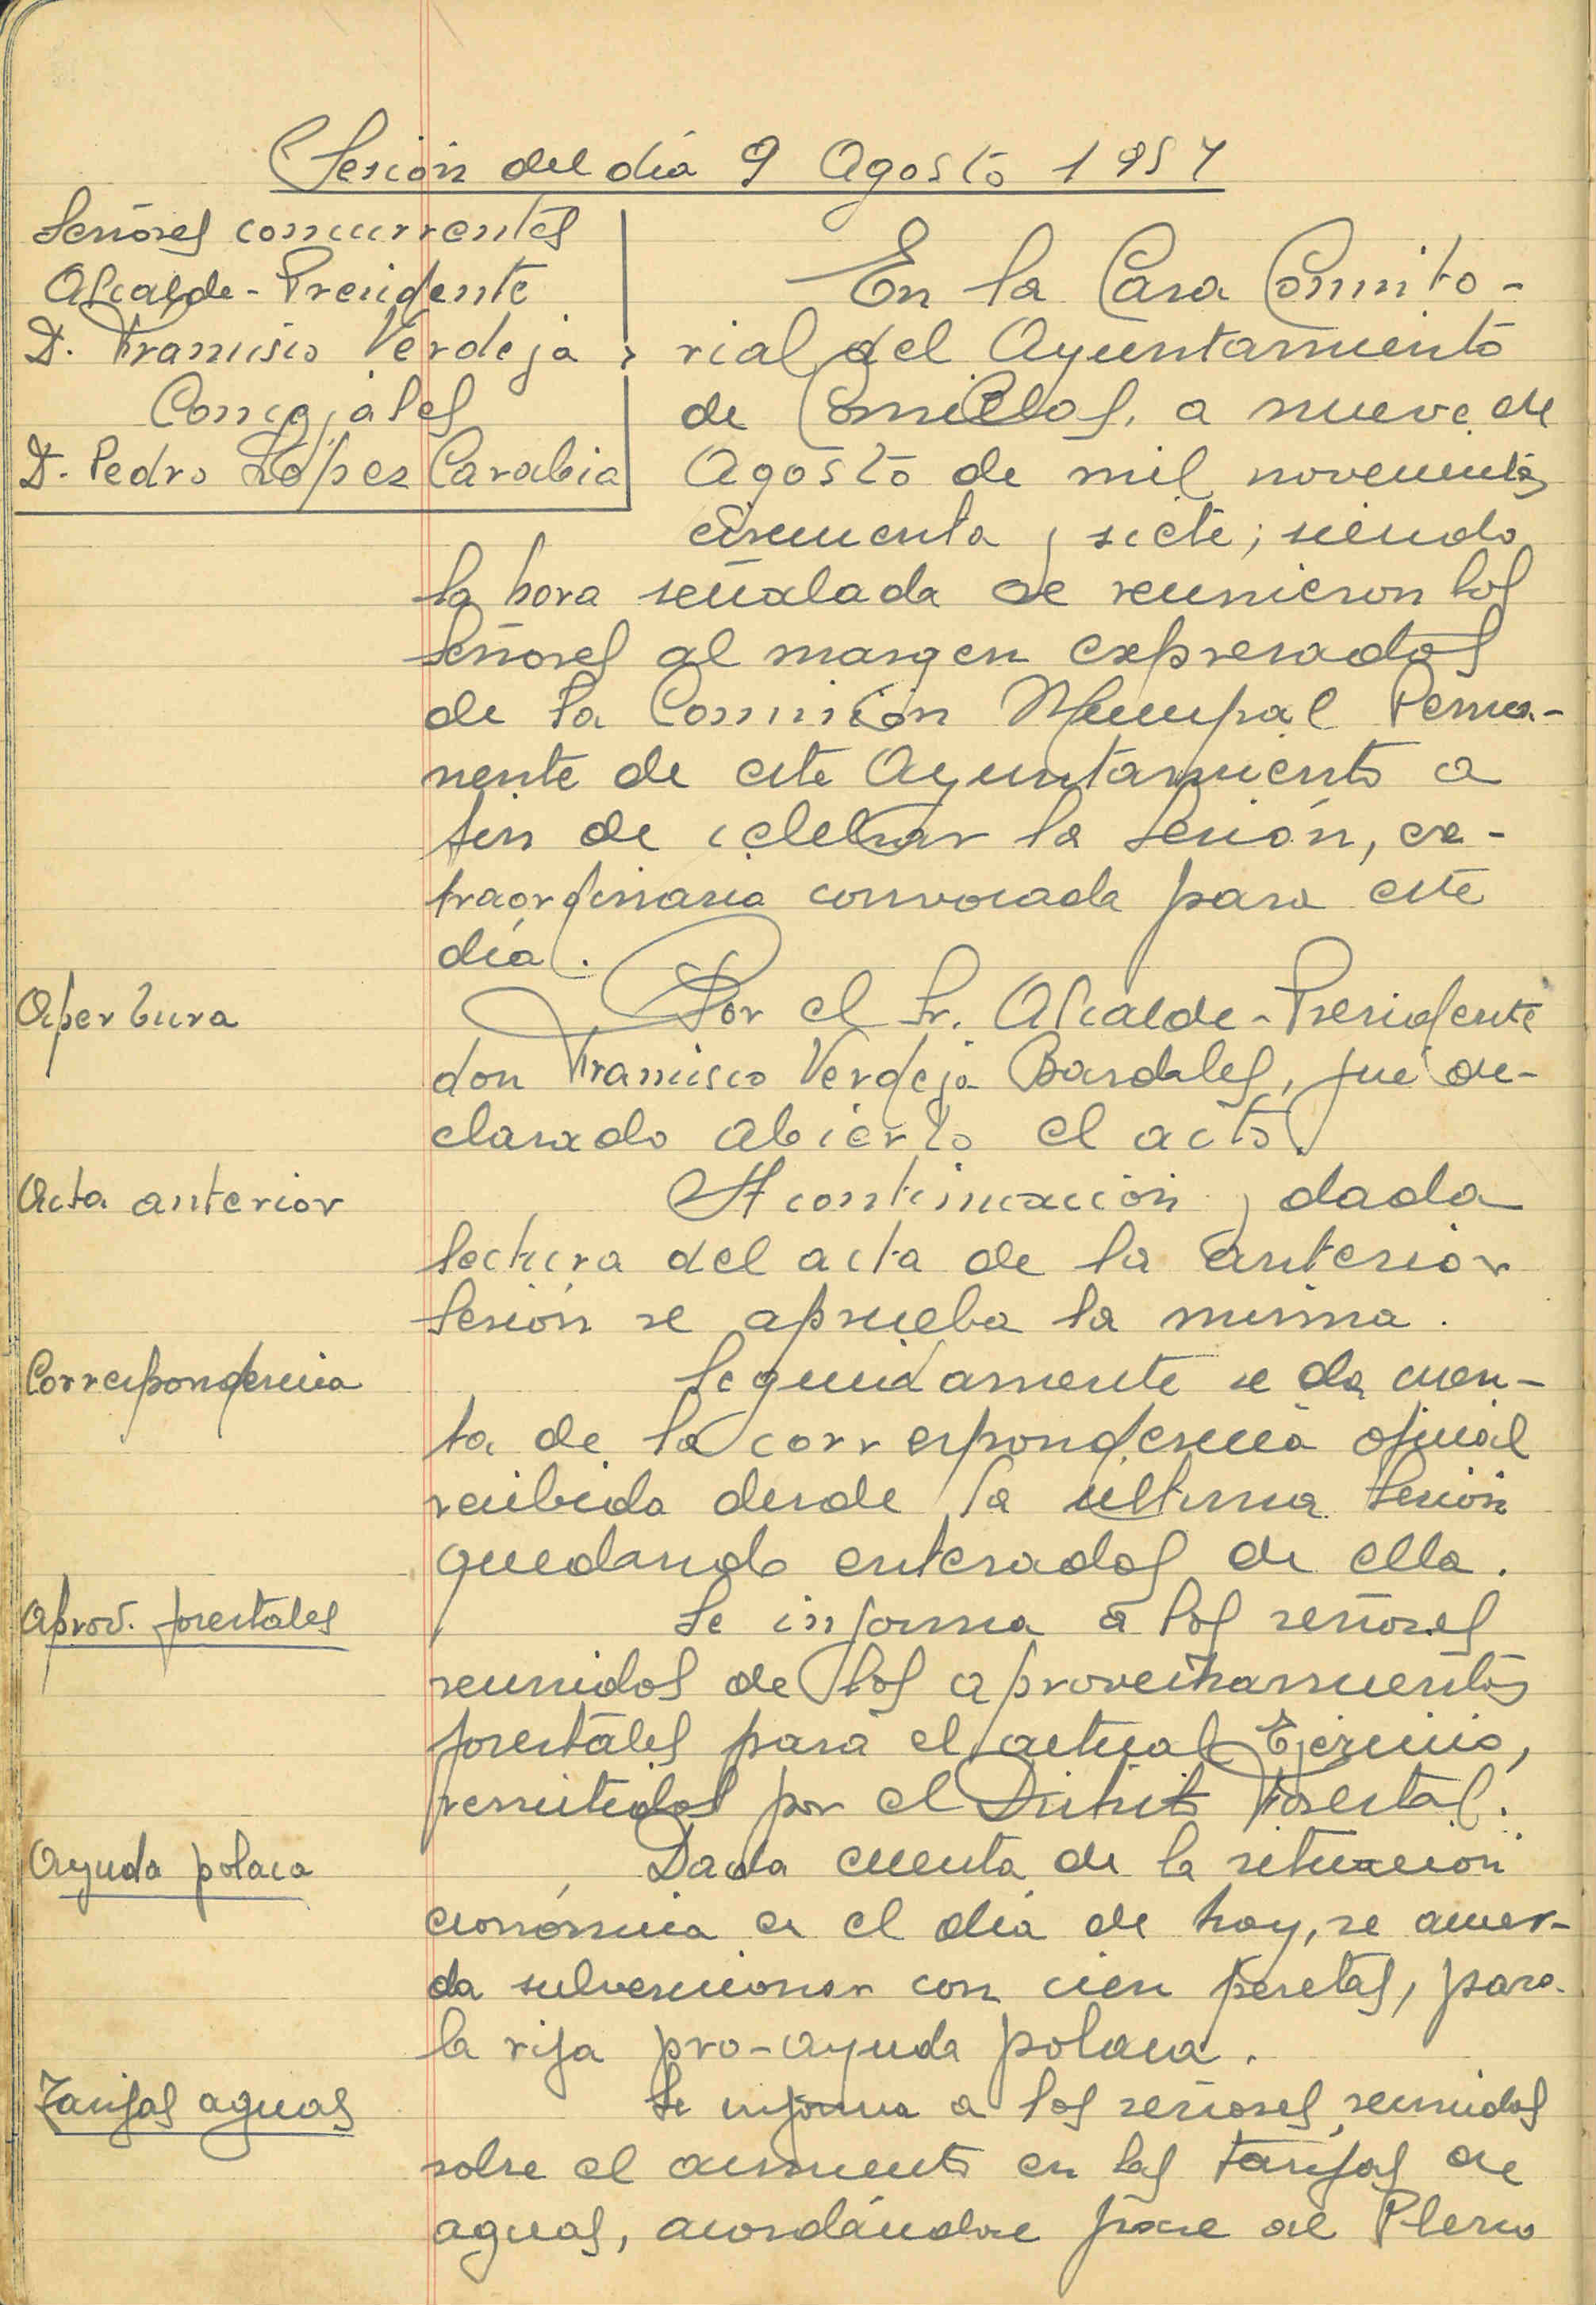 Sesión del día 9 Agosto 1957
Señores concurrentes
Alcalde-Presidente
D. Francisco Verdeja
Concejales
D. Pedro López Carabia
En la Casa Consisto-
rial del Ayuntamiento
de Comillas, a nueve de
Agosto de mil novecientos
cincuenta y siete; siendo
la hora señalada se reunieron los
señores al margen expresados
de la Comisión Municipal Perma-
nente de este Ayuntamiento a
fin de celebrar la sesión, ex-
traordinaria convocada para este
día.
Apertura
Por el Sr. Alcalde-Presidente
don Francisco Verdeja Bardales, fué de-
clarado abierto el acto.
Acta anterior
A continuación y dada
lectura del acta de la anterior
sesión se aprueba la misma.
Correspondencia
Seguidamente se da cuen-
ta de la correspondencia oficial
recibida desde la última sesión
quedando enterados de ella.
Aprov. forestales
Se informa a los señores
reunidos de los aprovechamientos
forestales para el actual Ejercicio,
remitidos por el Distrito Forestal.
Ayuda polaca
Dada cuenta de la situación
económica en el día de hoy, se acuer-
da subvencionar con cien pesetas, para
la rifa pro-ayuda polaca.
Tarifas aguas
Se informa a los señores reunidos
sobre el aumento en las tarifas de
aguas, acordándose pase al Pleno